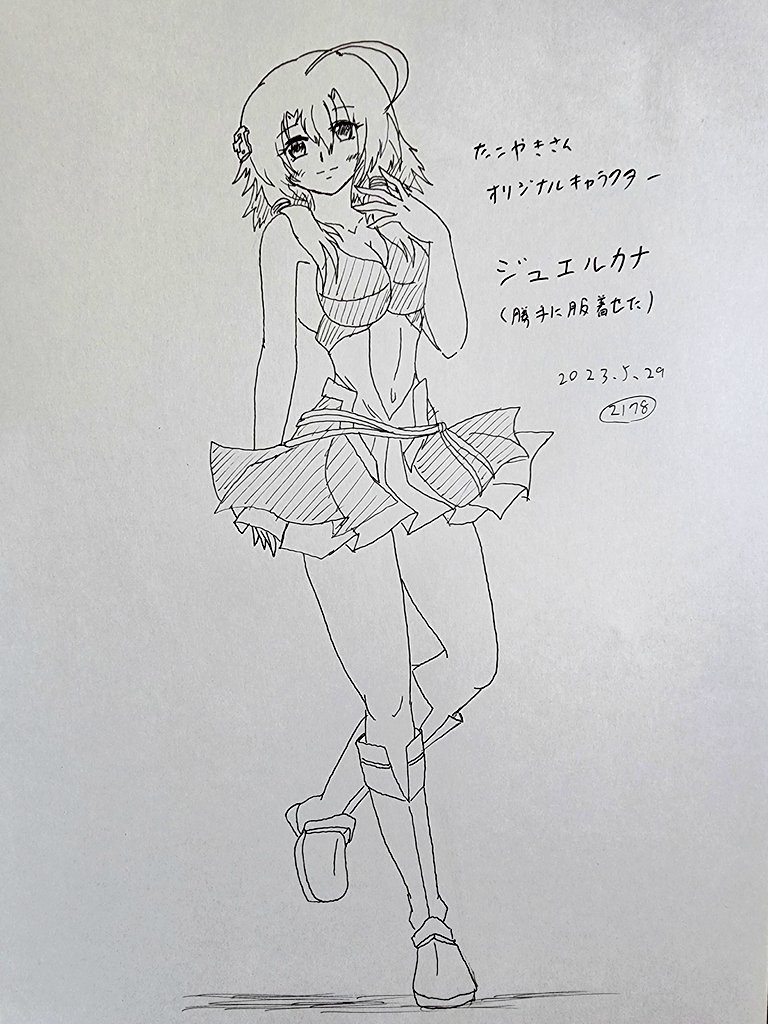 たこやきさん
オリジナルキャラクター
ジュエルカナ
(勝手に服着せた)
2023.5.29
2178